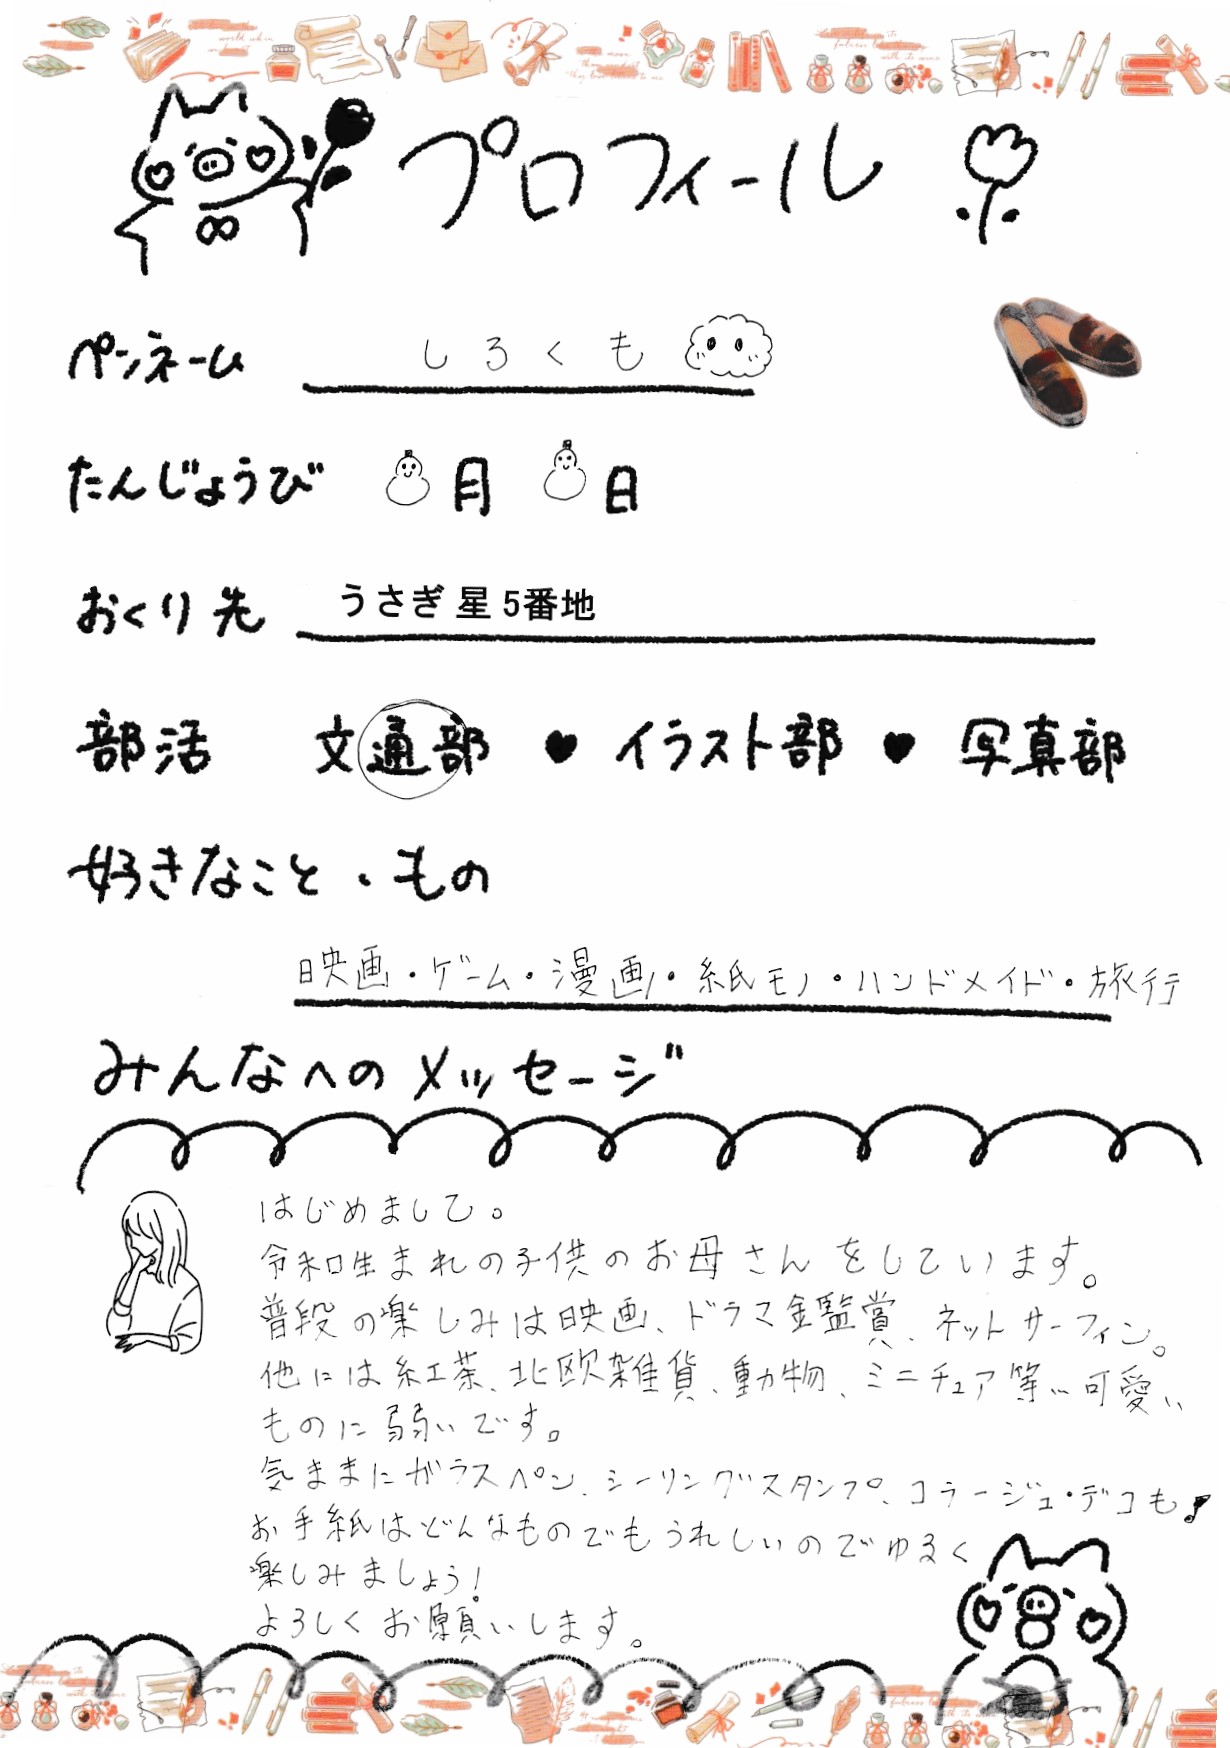 プロフィール
ペンネーム しろくも
たんじょうび 月 日
おくり先 うさぎ星5番地
部活 文通部 イラスト部 写真部
好きなこと・もの
映画・ゲーム・漫画・紙モノ・ハンドメイド・旅行
みんなへのメッセージ
はじめまして。
令和生まれの子供のお母さんをしています。
普段の楽しみは映画、ドラマ鑑賞、ネットサーフィン。
他には紅茶、北欧雑貨、動物、ミニチュア等…可愛い
ものに弱いです。
気ままにガラスペン、シーリングスタンプ、コラージュ・デコも♪
お手紙はどんなものでもうれしいのでゆるく
楽しみましょう!
よろしくお願いします。